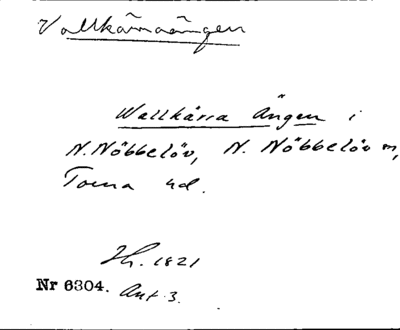 Vallkärraängen
Wallkärra Ängen i
N. Nöbbelöv, N. Nöbbelöv sn,
Torna hd.
Jh. 1821
Nr 6304. Ant. 3.